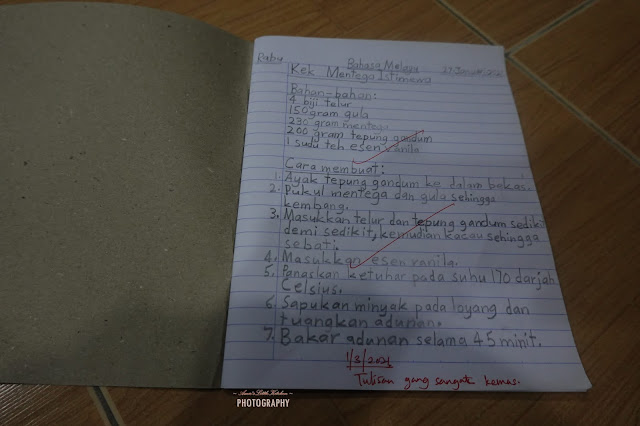 Rabu Bahasa Melayu
Kek Mentega Istimewa
Bahan-bahan:
4 biji telur
150 gram gula
230 gram mentega
200 gram tepung gandum
1 sudu teh esen vanila
Cara membuat:
1. Ayak tepung gandum ke dalam bekas.
2. Pukul mentega dan gula sehingga
kembang.
3. Masukkan telur dan tepung gandum sedikit
demi sedikit, kemudian kacau sehingga
sebati.
4. Masukkan esen vanila.
5. Panaskan ketuhar pada suhu 170 darjah
Celsius.
6. Sapukan minyak pada loyang dan
tuangkan adunan.
7. Bakar adunan selama 45 minit.
1/3/2021
Tulisan yang sangat kemas.
~ Azie's Little Kitchen ~
PHOTOGRAPHY